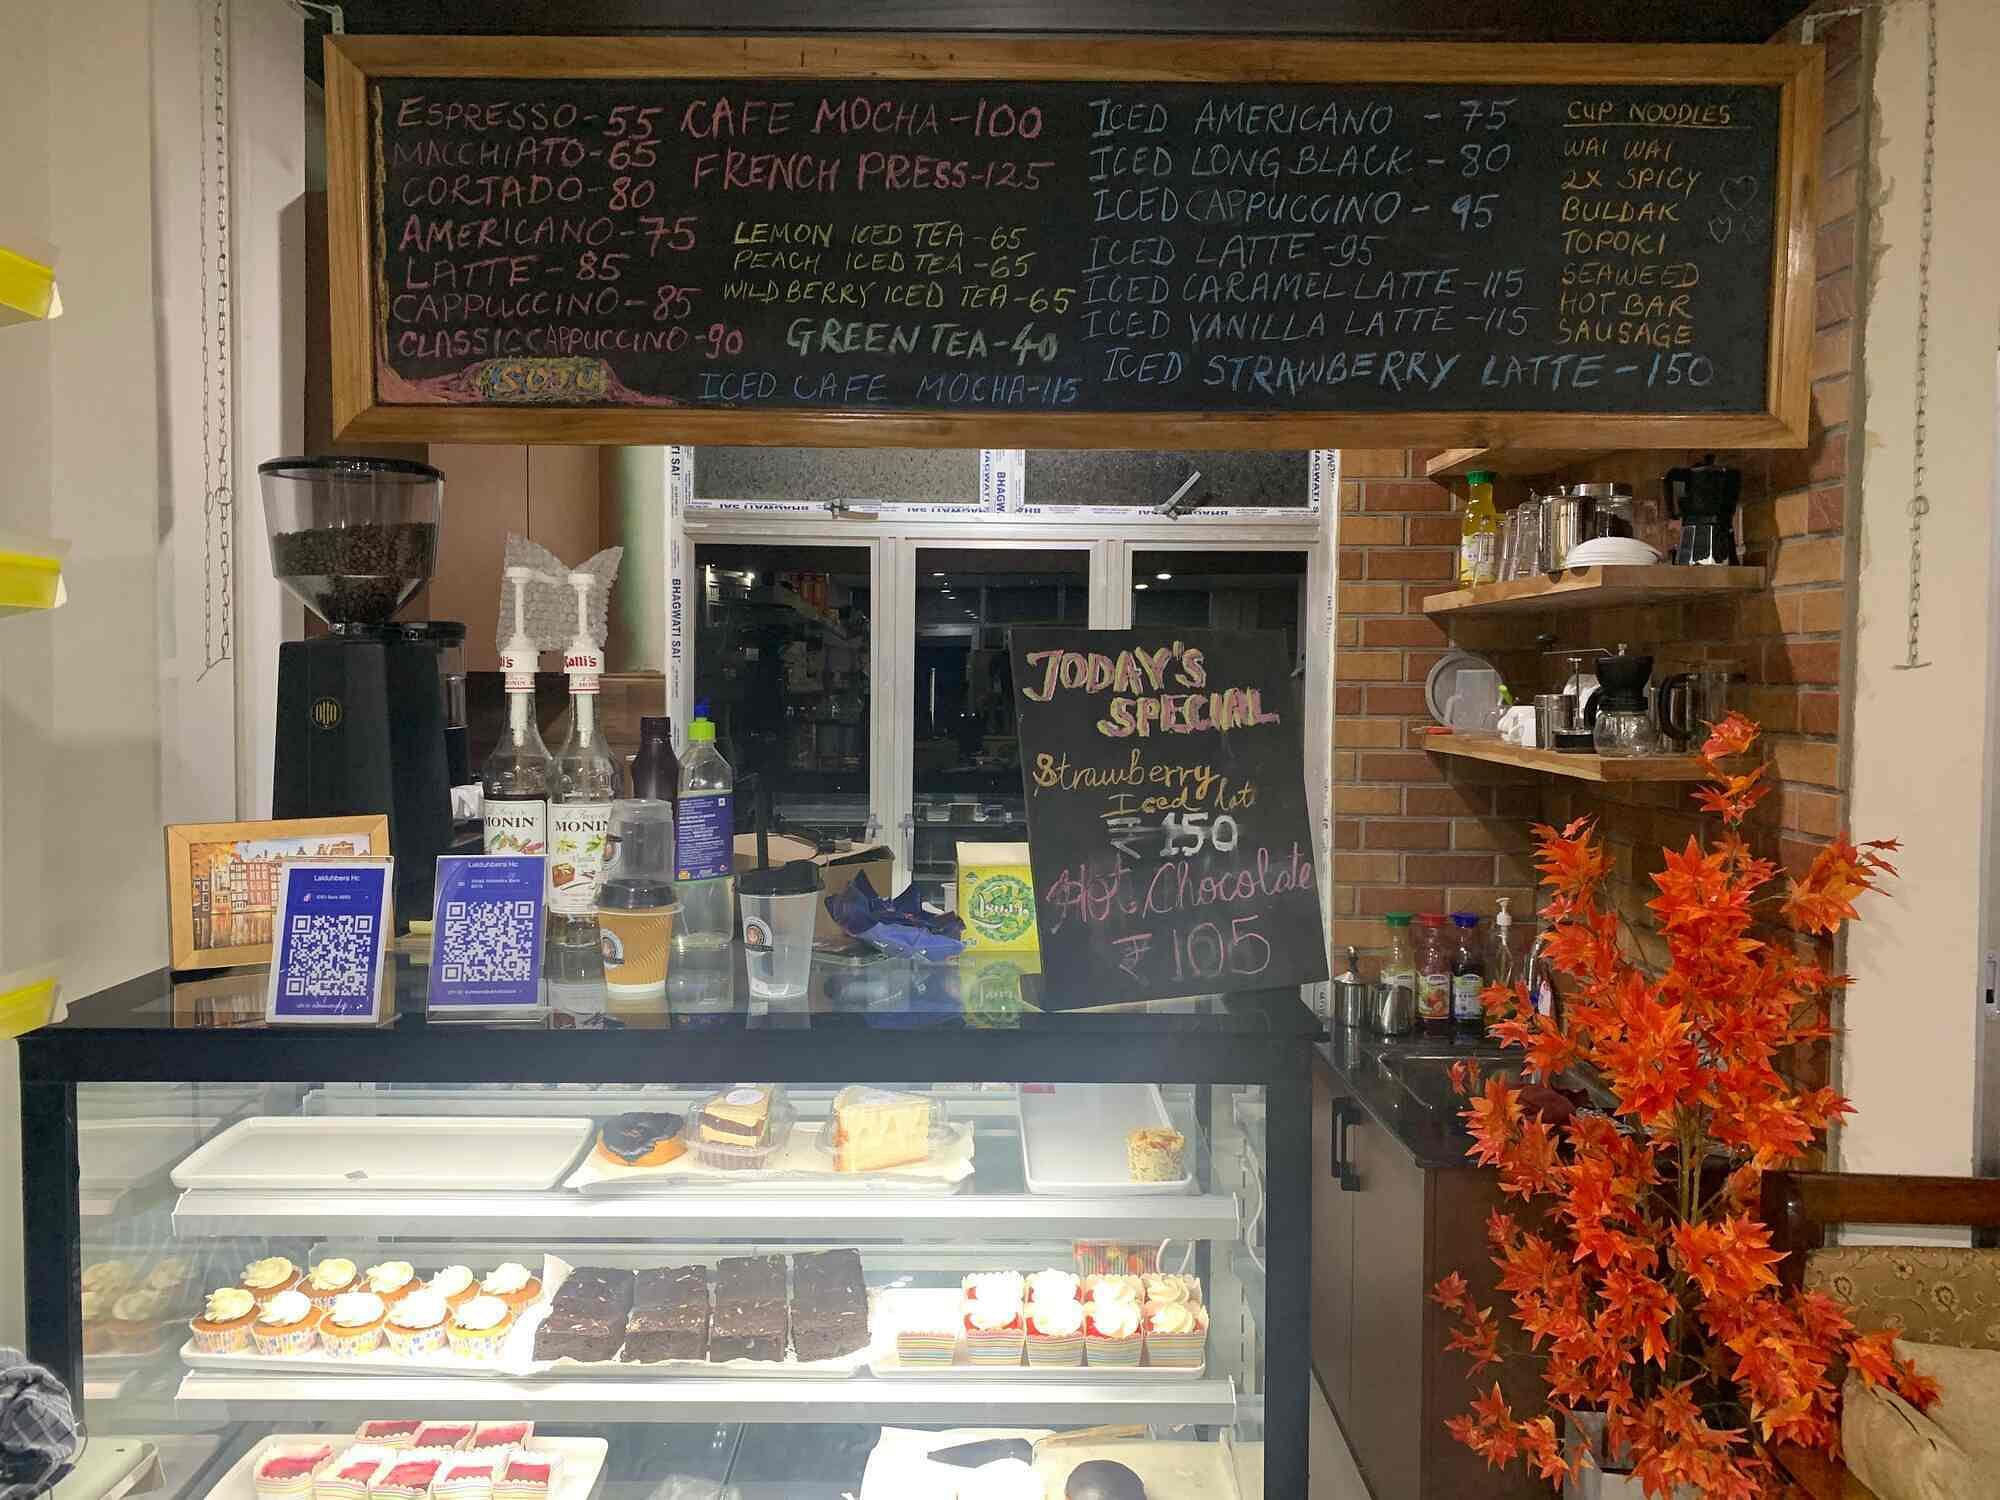 ESPRESSO-55
MACCHIATO-65
CORTADO-80
AMERICANO-75
LATTE-85
CAPPUCCINO-85
CLASSIC CAPPUCCINO-90
SOJU
CAFE MOCHA-100
FRENCH PRESS-125
LEMON ICED TEA-65
PEACH ICED TEA-65
WILDBERRY ICED TEA-65
GREEN TEA-40
ICED CAFE MOCHA-115
ICED AMERICANO - 75
ICED LONG BLACK - 80
ICED CAPPUCCINO - 95
ICED LATTE-95
ICED CARAMEL LATTE-115
ICED VANILLA LATTE-115
ICED STRAWBERRY LATTE-150
CUP NOODLES
WAI WAI
2X SPICY
BULDAK
TOPOKI
SEAWEED
HOT BAR
SAUSAGE
BHAGWATI SAI
TODAY'S
SPECIAL
Strawberry
Iced
₹ 150
Hot Chocolate
₹ 105
MONIN
MONIN
Lalduhbera Hc
Lalduhbera Hc